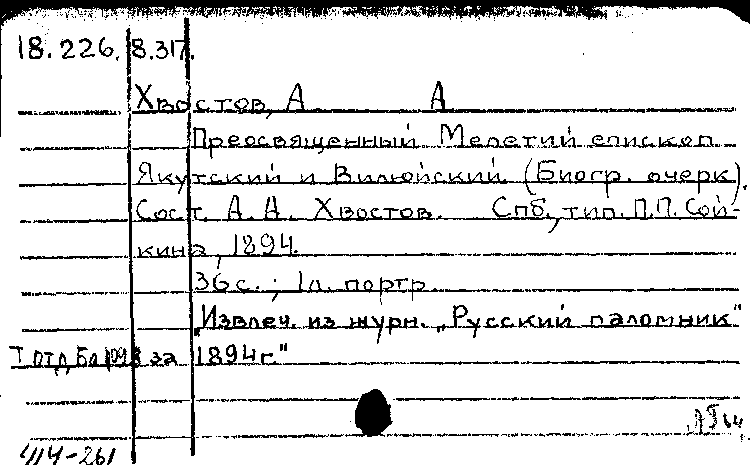 18.226. 8.317.
Хвостов, А. А.
Преосвященный Мелетий епископ
Якутский и Вилюйский (Биогр. очерк).
Сост. А. А. Хвостов. Спб., тип. П.П. Сой-
кина, 1894.
36 с.; 1 л. портр.
"Извлеч. из журн. „Русский паломник"
за 1894 г."
414-261